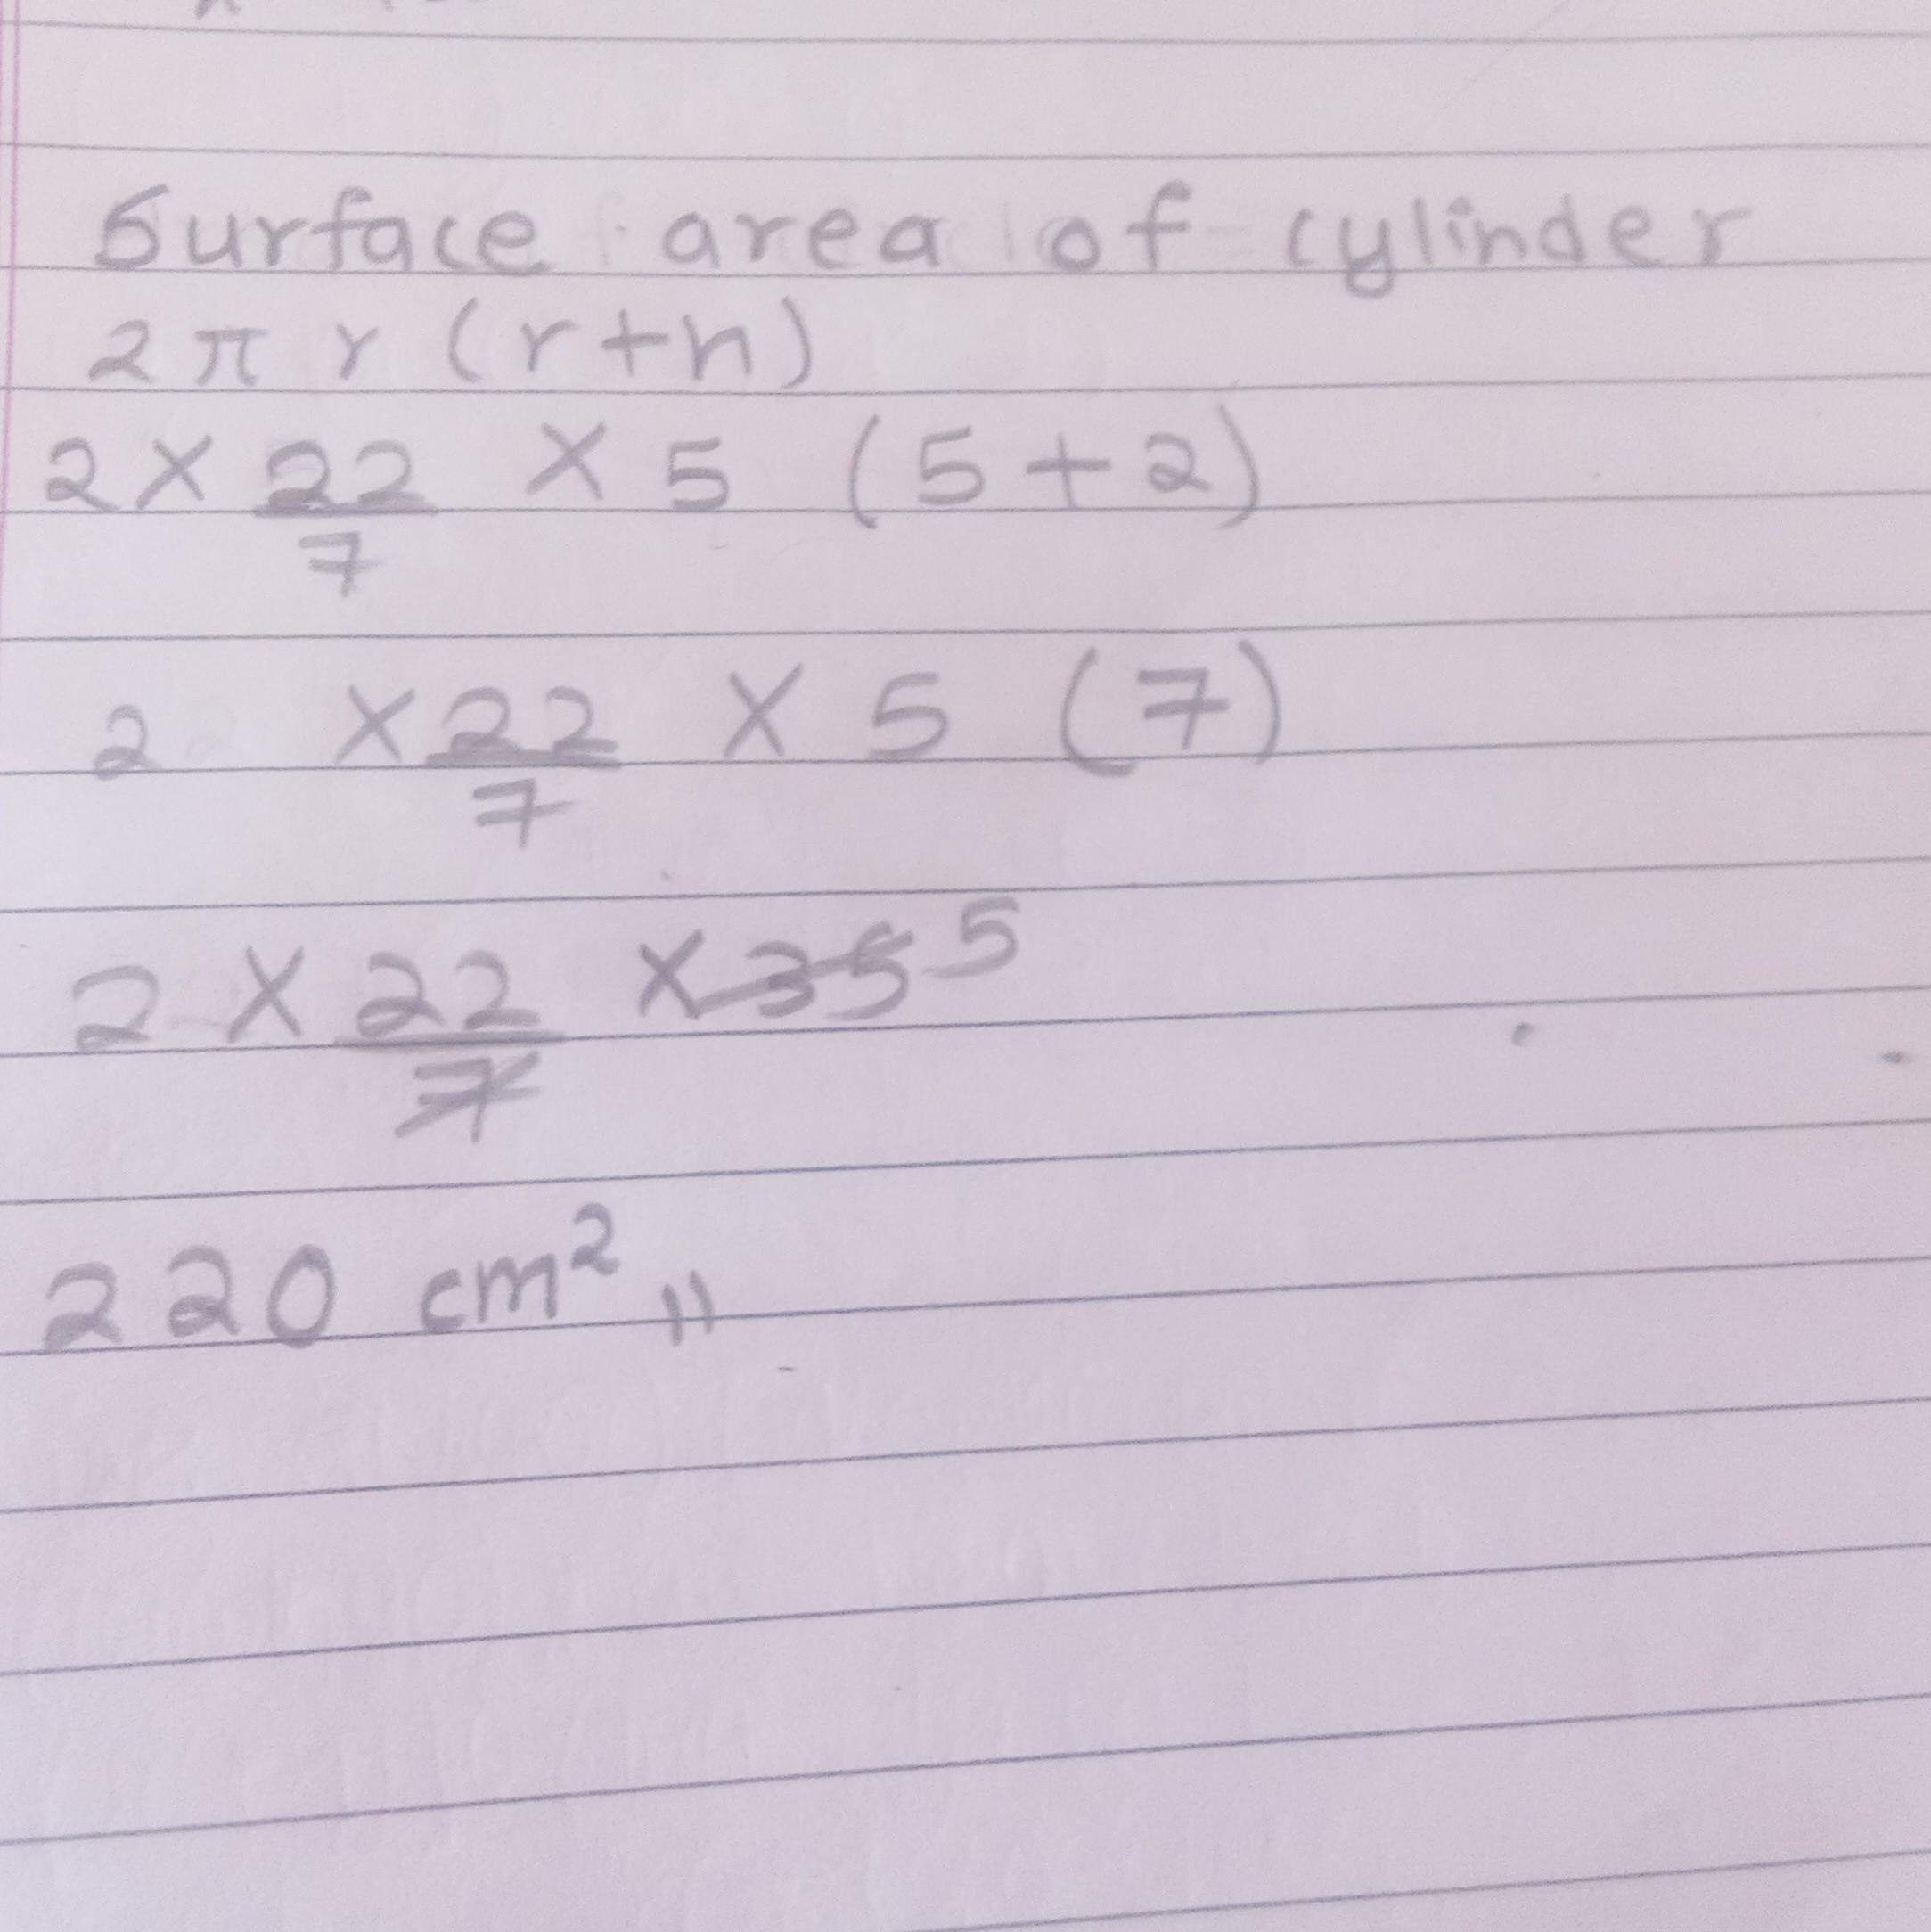 Surface area of cylinder
2πr (r+h)
2 × 22/7 × 5 (5+2)
2 × 22/7 × 5 (7)
2 × 22/7 × 35 5
220 cm² "